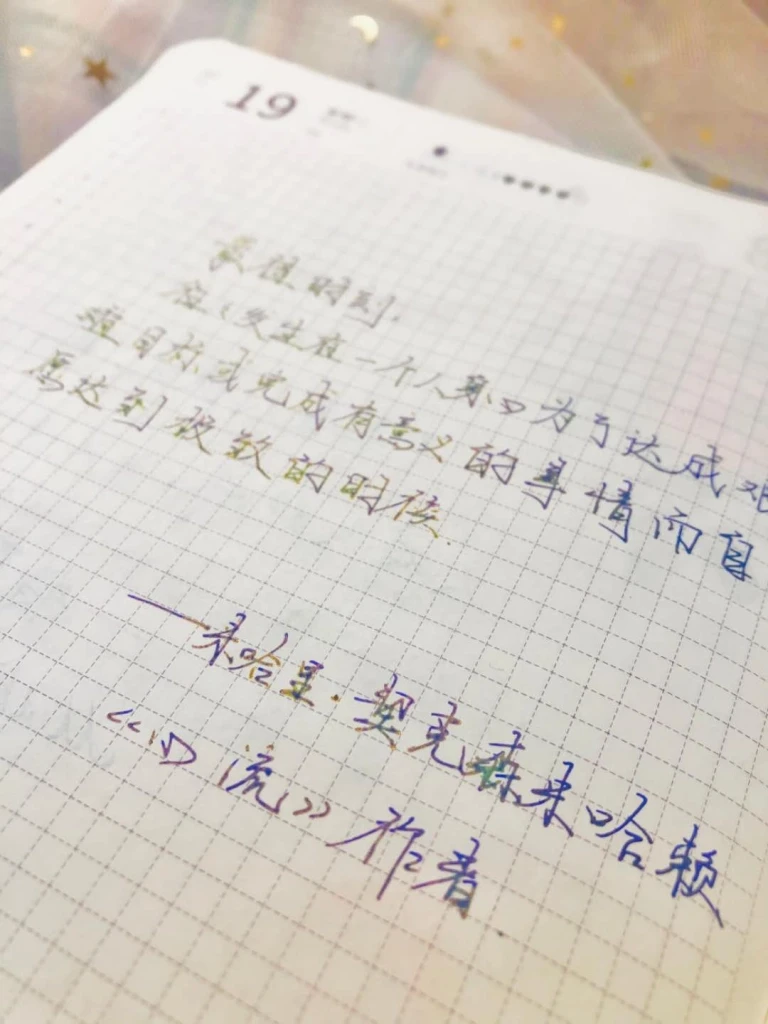 19
最值时刻,
应(发生在一个人身心为了达成艰
难目标或完成有意义的事情而自
愿达到极致的时候.
——米哈里·契克森米哈赖
《心流》作者